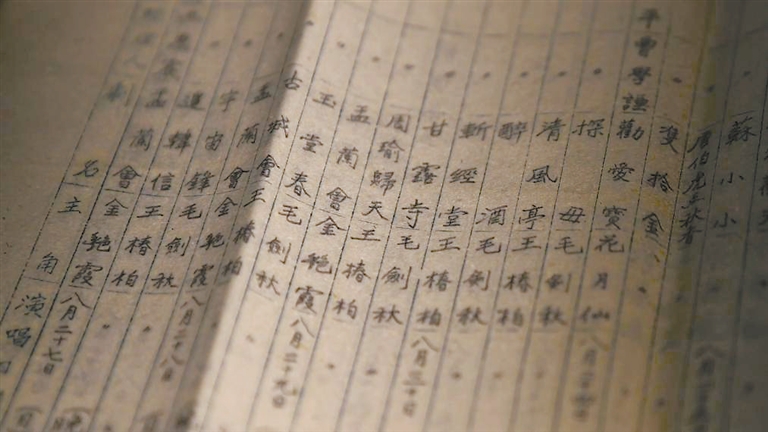 劇名主角演唱
孟蘭會金艷霞八月二十七日
追韓信王椿柏
宇宙鋒毛劍秋八月二十八日
孟蘭會金艷霞
古城會王椿柏
玉堂春毛劍秋
孟蘭會金艷霞八月二十九日
周瑜歸天王椿柏
甘露寺毛劍秋
斬經堂王椿柏八月三十日
醉酒毛劍秋
清風亭王椿柏
探母毛劍秋
勸愛寶花月仙
雙拾金
唐伯虎点秋香
蘇小小